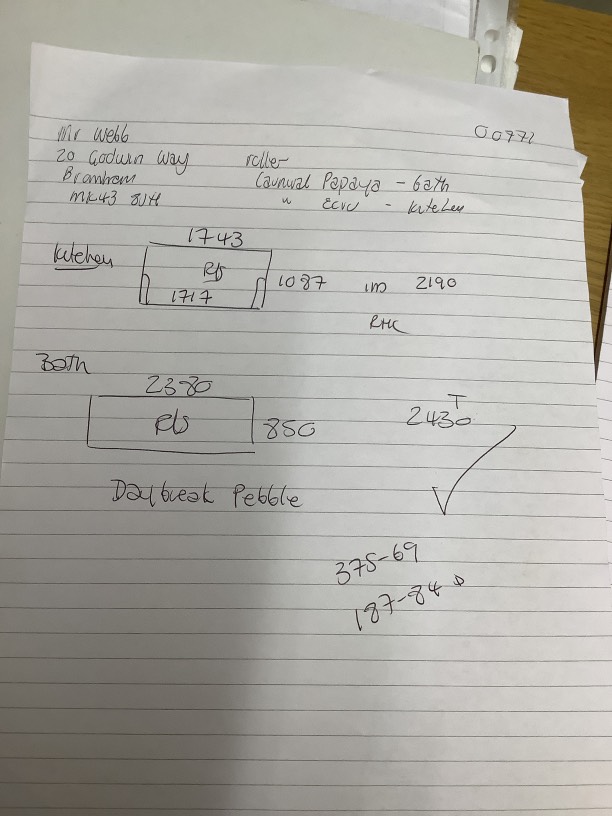 00772
Mr Webb
20 Godwin Way
Bromham
MK43 8JH
roller
Carnival Papaya - Bath
" Ecru - Kitchen
Kitchen
1743
R/S
1717
1087 IM 2190
RHC
Bath
2380
R/S
850
T
2430
Daybreak Pebble
375-69
187-84 D